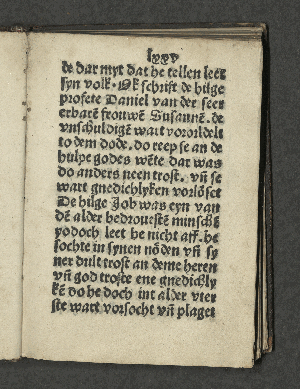 lxxv
de dar myt dat he tellen leet
syn volk. Ok schrift de hilge
profete Daniel van der seer
erbarē frouwē Susannē. de
vnschuldigē wart vorordelt
to dem dode. do reep se an de
hulpe godes wēte dar was
do anders neen trost. vn̄ se
wart gnedichlyken vorlöset
De hilge Job was eyn van
dē alder bedrouestē minschē
yodoch leet he nicht aff. he
sochte in synen nöden vn̄ sy
ner dult trost an deme heren
vn̄ god troste ene gnedichly
kē do he doch int alder vter
ste wart vorsocht vn̄ plaget